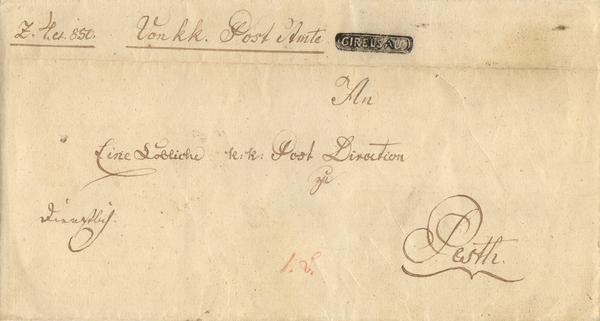 Von k k. Post Amte
GIRELSAU
An
Eine Löbliche k: k: Post Direction
zu
Dienstlich.
Pesth.